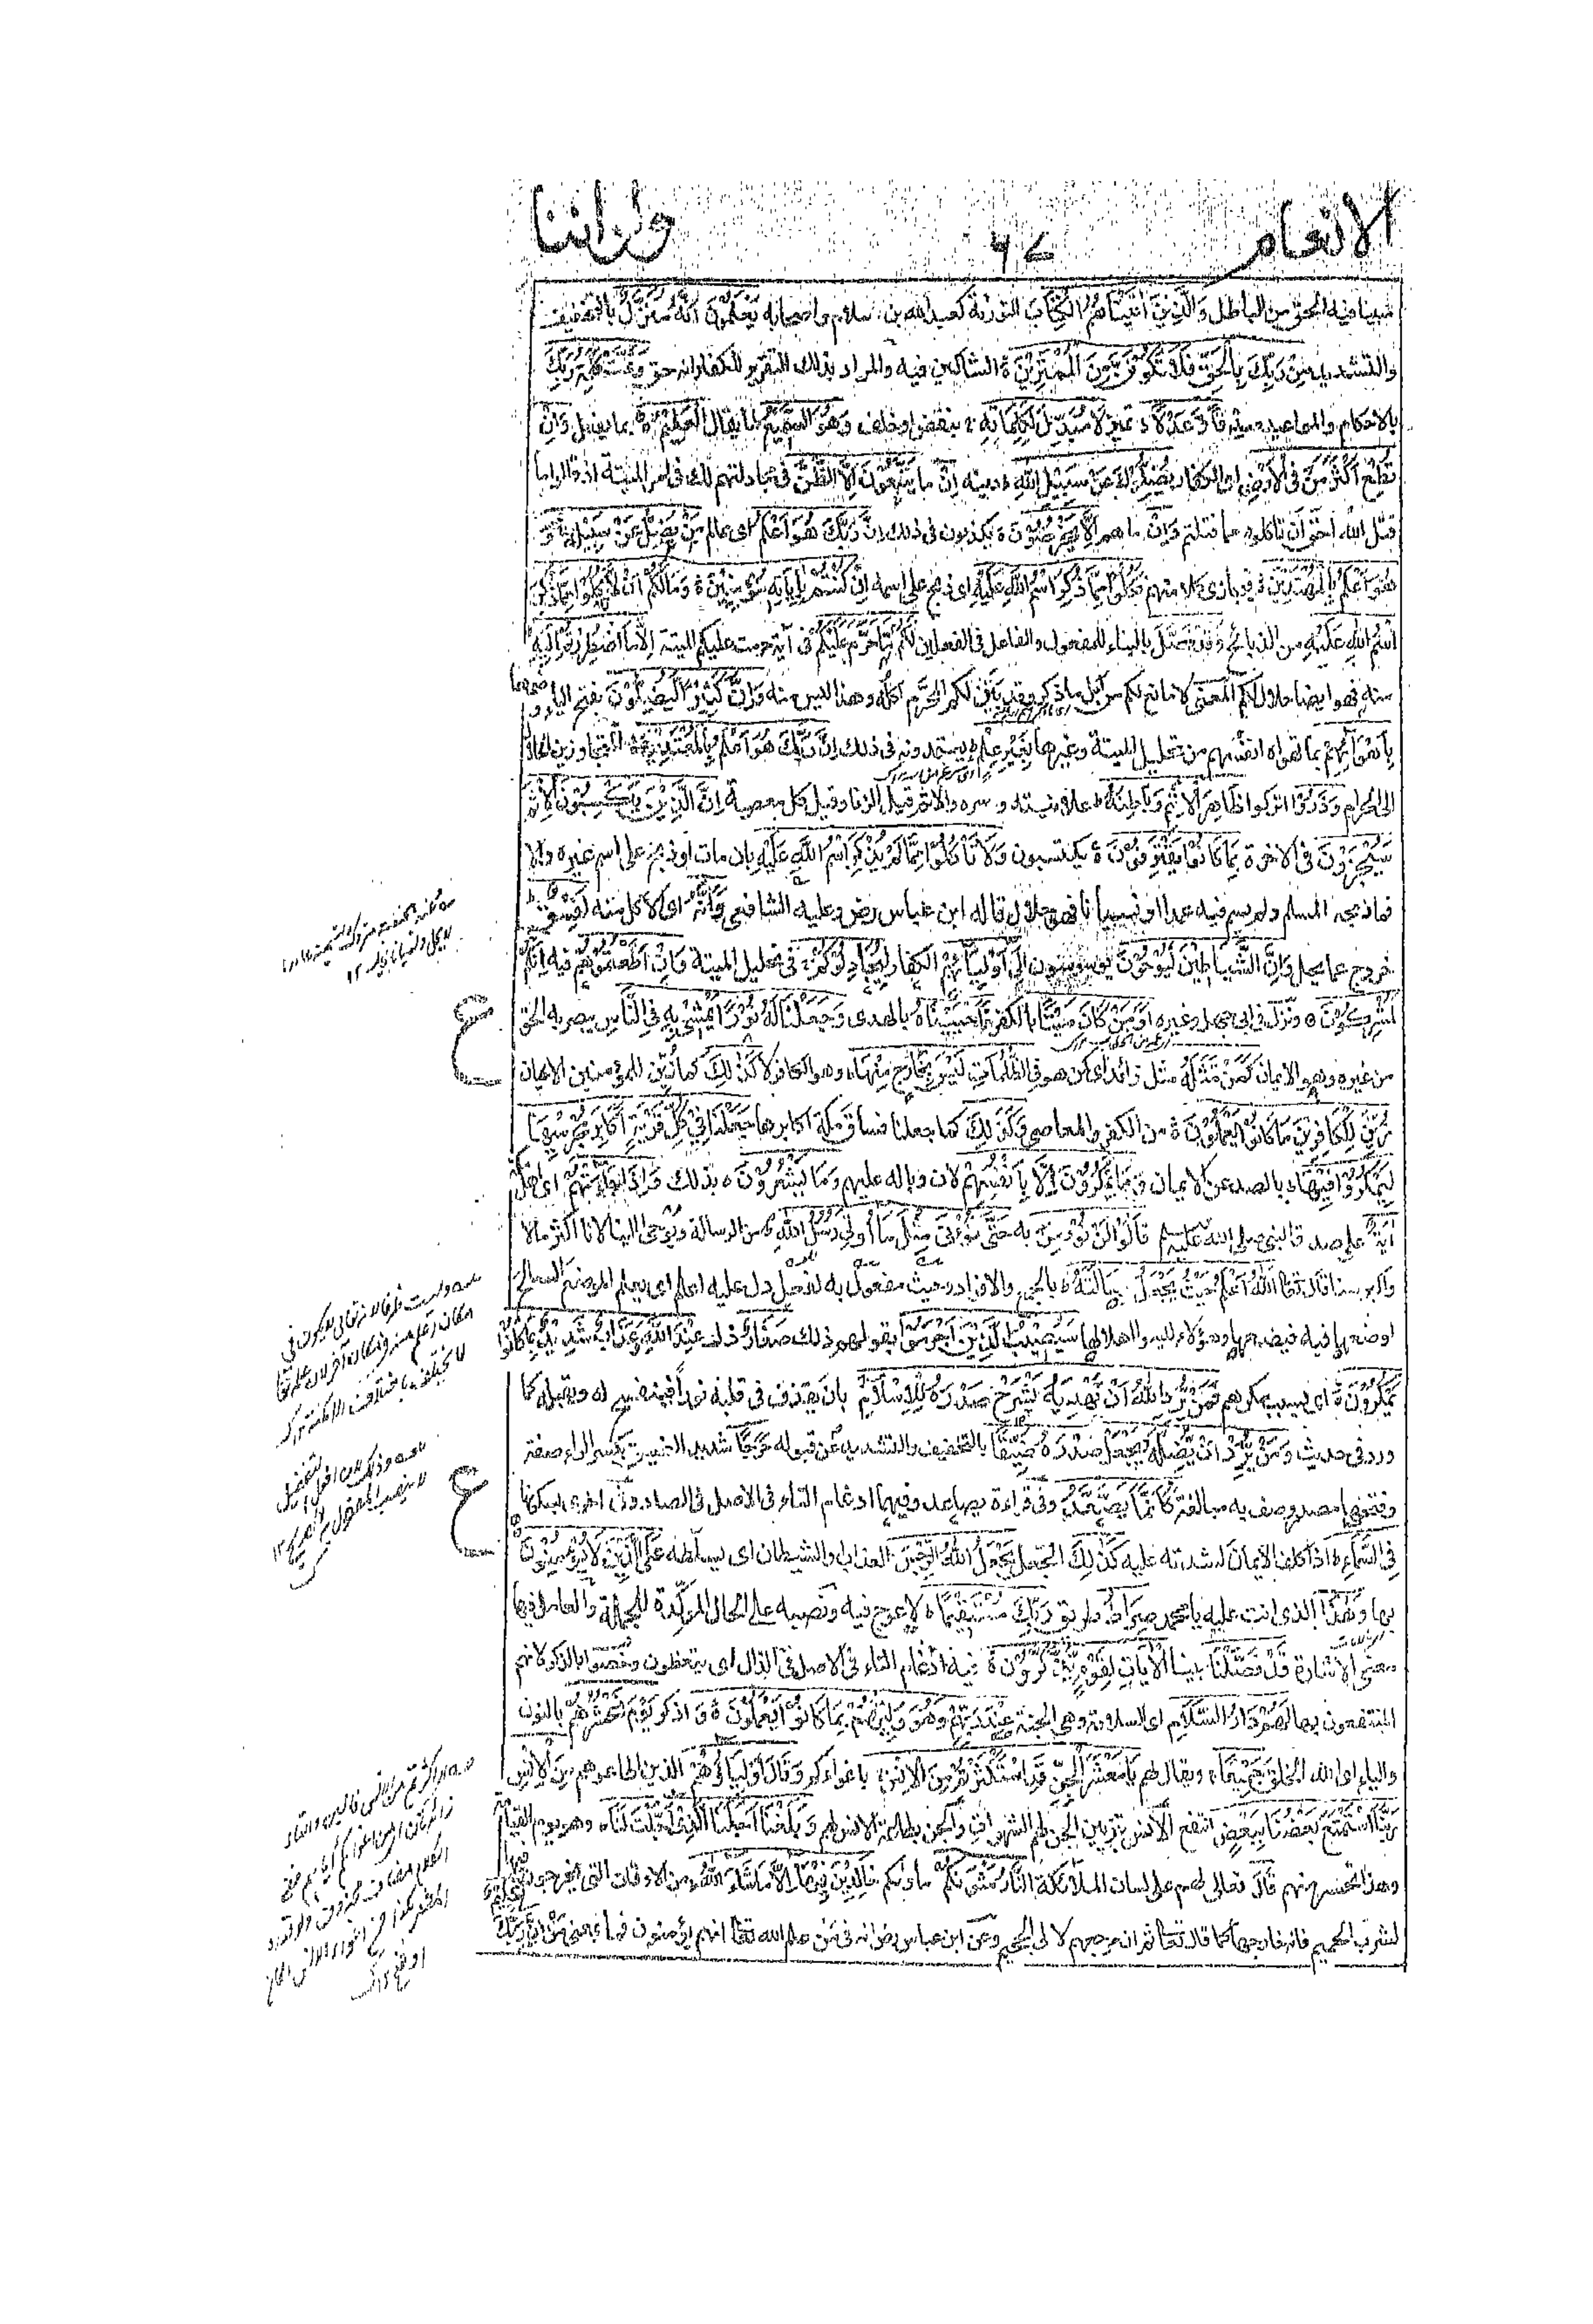 الانعام ٦٧ ولو اننا
مبينا فيه الحق من الباطل وَالَّذِيْنَ اٰتَيْنَاهُمُ الْكِتَابَ التوراة كعبد الله بن سلام واصحابه يَعْلَمُوْنَ اَنَّهُ مُنَزَّلٌ بالتخفيف
والتشديد مِنْ رَبِّكَ بِالْحَقِّ فَلَا تَكُوْنَنَّ مِنَ الْمُمْتَرِيْنَ ۝ الشاكين فيه والمراد بذلك التقرير للكفار انه حق وَتَمَّتْ كَلِمَةُ رَبِّكَ
بالاحكام والمواعيد صِدْقًا وَّعَدْلًا تمييز لَا مُبَدِّلَ لِكَلِمَاتِهٖ بنقض او خلف وَهُوَ السَّمِيْعُ لما يقال الْعَلِيْمُ ۝ بما يفعل وَاِنْ
تُطِعْ اَكْثَرَ مَنْ فِي الْاَرْضِ اى الكفار يُضِلُّوْكَ عَنْ سَبِيْلِ اللّٰهِ دينه اِنْ ما يَّتَّبِعُوْنَ اِلَّا الظَّنَّ فى مجادلتهم لك فى امر الميتة اذ قالوا ما
قتل الله احق ان تاكلوه مما قتلتم وَاِنْ ما هم اِلَّا يَخْرُصُوْنَ ۝ يكذبون فى ذلك اِنَّ رَبَّكَ هُوَ اَعْلَمُ اى عالم مَنْ يَّضِلُّ عَنْ سَبِيْلِهٖ وَ
هُوَ اَعْلَمُ بِالْمُهْتَدِيْنَ فيجازى كلا منهم فَكُلُوْا مِمَّا ذُكِرَ اسْمُ اللّٰهِ عَلَيْهِ اى ذبح على اسمه اِنْ كُنْتُمْ بِاٰيَاتِهٖ مُؤْمِنِيْنَ ۝ وَمَا لَكُمْ اَنْ لَّا تَاْكُلُوْا مِمَّا ذُكِرَ
اسْمُ اللّٰهِ عَلَيْهِ من الذبائح وَقَدْ فَصَّلَ بالبناء للمفعول والفاعل فى الفعلين لَكُمْ مَّا حَرَّمَ عَلَيْكُمْ فى آية حرمت عليكم الميتة اِلَّا مَا اضْطُرِرْتُمْ اِلَيْهِ
منه فهو ايضا حلال لكم المعنى لا مانع لكم من اكل ما ذكر وقد بين لكم المحرم اكله وهذا ليس منه وَاِنَّ كَثِيْرًا لَّيُضِلُّوْنَ بفتح الياء وضمها
بِاَهْوَائِهِمْ بما تهواه انفسهم من تحليل الميتة وغيرها بِغَيْرِ عِلْمٍ يعتمدونه فى ذلك اِنَّ رَبَّكَ هُوَ اَعْلَمُ بِالْمُعْتَدِيْنَ ۝ المتجاوزين الحلال
الى الحرام وَذَرُوْا اتركوا ظَاهِرَ الْاِثْمِ وَبَاطِنَهُ علانيته وسره والاثم قيل الزنا وقيل كل معصية اِنَّ الَّذِيْنَ يَكْسِبُوْنَ الْاِثْمَ
سَيُجْزَوْنَ فى الاخرة بِمَا كَانُوْا يَقْتَرِفُوْنَ ۝ يكتسبون وَلَا تَاْكُلُوْا مِمَّا لَمْ يُذْكَرِ اسْمُ اللّٰهِ عَلَيْهِ بان مات او ذبح على اسم غيره والا
فما ذبحه المسلم ولم يسم فيه عمدا او نسيانا فهو حلال قاله ابن عباس رض وعليه الشافعى وَاِنَّهُ اى الاكل منه لَفِسْقٌ
خروج عما يحل وَاِنَّ الشَّيَاطِيْنَ لَيُوْحُوْنَ يوسوسون اِلٰى اَوْلِيَائِهِمْ الكفار لِيُجَادِلُوْكُمْ فى تحليل الميتة وَاِنْ اَطَعْتُمُوْهُمْ فيه اِنَّكُمْ
لَمُشْرِكُوْنَ ۝ ونزل فى ابى جهل وغيره اَوَمَنْ كَانَ مَيْتًا بالكفر فَاَحْيَيْنَاهُ بالهدى وَجَعَلْنَا لَهُ نُوْرًا يَّمْشِيْ بِهٖ فِي النَّاسِ يبصر به الحق
من غيره وهو الايمان كَمَنْ مَّثَلُهُ مثل زائد اى كمن هو فِي الظُّلُمَاتِ لَيْسَ بِخَارِجٍ مِّنْهَا وهو الكافر لا كَذٰلِكَ كما زين للمؤمنين الايمان
زُيِّنَ لِلْكَافِرِيْنَ مَا كَانُوْا يَعْمَلُوْنَ ۝ من الكفر والمعاصى وَكَذٰلِكَ كما جعلنا فساق مكة اكابرها جَعَلْنَا فِيْ كُلِّ قَرْيَةٍ اَكَابِرَ مُجْرِمِيْهَا
لِيَمْكُرُوْا فِيْهَا بالصد عن الايمان وَمَا يَمْكُرُوْنَ اِلَّا بِاَنْفُسِهِمْ لان وباله عليهم وَمَا يَشْعُرُوْنَ ۝ بذلك وَاِذَا جَاءَتْهُمْ اى اهل مكة
اٰيَةٌ على صدق النبى صلى الله عليه وسلم قَالُوْا لَنْ نُّؤْمِنَ به حَتّٰى نُؤْتٰى مِثْلَ مَا اُوْتِيَ رُسُلُ اللّٰهِ من الرسالة ويوحى الينا لانا اكثر مالا
واكبر سنا قال تعالى اَللّٰهُ اَعْلَمُ حَيْثُ يَجْعَلُ رِسَالَتَهُ بالجمع والافراد وحيث مفعول به لفعل دل عليه اعلم اى يعلم الموضع الصالح
لوضعها فيه فيضعها وهؤلاء ليسوا اهلا لها سَيُصِيْبُ الَّذِيْنَ اَجْرَمُوْا بقولهم ذلك صَغَارٌ ذل عِنْدَ اللّٰهِ وَعَذَابٌ شَدِيْدٌ بِمَا كَانُوْا
يَمْكُرُوْنَ ۝ اى بسبب مكرهم فَمَنْ يُّرِدِ اللّٰهُ اَنْ يَّهْدِيَهُ يَشْرَحْ صَدْرَهُ لِلْاِسْلَامِ بان يقذف فى قلبه نورا فينفسح له ويقبله كما
ورد فى حديث وَمَنْ يُّرِدْ ان يُّضِلَّهُ يَجْعَلْ صَدْرَهُ ضَيِّقًا بالتخفيف والتشديد عن قبوله حَرَجًا شديد الضيق بكسر الراء صفة
وفتحها مصدر وصف به مبالغة كَاَنَّمَا يَصَّعَّدُ وفى قراءة يصاعد وفيهما ادغام التاء فى الاصل فى الصاد وفى اخرى بسكونها
فِي السَّمَاءِ اذا كلف الايمان لشدته عليه كَذٰلِكَ الجعل يَجْعَلُ اللّٰهُ الرِّجْسَ العذاب او الشيطان اى يسلطه عَلَى الَّذِيْنَ لَا يُؤْمِنُوْنَ
وَهٰذَا الذى انت عليه يا محمد صِرَاطُ طريق رَبِّكَ مُسْتَقِيْمًا لا عوج فيه ونصبه على الحال المؤكدة للجملة والعامل فيها
معنى الاشارة قَدْ فَصَّلْنَا بينا الْاٰيَاتِ لِقَوْمٍ يَّذَّكَّرُوْنَ ۝ فيه ادغام التاء فى الاصل فى الذال اى يتعظون وخصوا بالذكر لانهم
المنتفعون بها لَهُمْ دَارُ السَّلَامِ اى السلامة وهى الجنة عِنْدَ رَبِّهِمْ وَهُوَ وَلِيُّهُمْ بِمَا كَانُوْا يَعْمَلُوْنَ ۝ وَ اذكر يَوْمَ نَحْشُرُهُمْ بالنون
والياء اى الله الخلق جَمِيْعًا ويقال لهم يَا مَعْشَرَ الْجِنِّ قَدِ اسْتَكْثَرْتُمْ مِّنَ الْاِنْسِ باغوائكم وَقَالَ اَوْلِيَاؤُهُمْ الذين اطاعوهم مِّنَ الْاِنْسِ
رَبَّنَا اسْتَمْتَعَ بَعْضُنَا بِبَعْضٍ انتفع الانس بتزيين الجن لهم الشهوات والجن بطاعة الانس لهم وَّبَلَغْنَا اَجَلَنَا الَّذِيْ اَجَّلْتَ لَنَا وهو يوم القيامة
وهذا تحسر منهم قَالَ تعالى لهم على لسان الملائكة النَّارُ مَثْوَاكُمْ مأواكم خَالِدِيْنَ فِيْهَا اِلَّا مَا شَاءَ اللّٰهُ من الاوقات التى يخرجون فيها
لشرب الحميم فانه خارجها كما قال تعالى ثم ان مرجعهم لالى الجحيم وعن ابن عباس رض انه فى من علم الله تعالى انهم يؤمنون فما بمعنى من اِنَّ رَبَّكَ
ع
ع